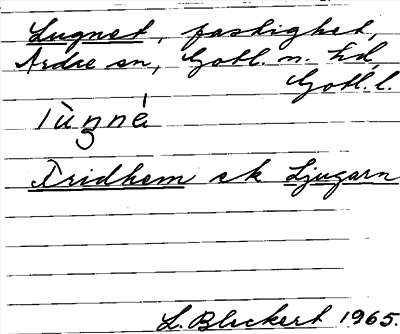 Lugnet, fastighet,
Ardre sn, Gotl. n. hd,
Gotl. l.
lùŋné
Fridhem ek Ljugarn
L. Bleckert 1965.